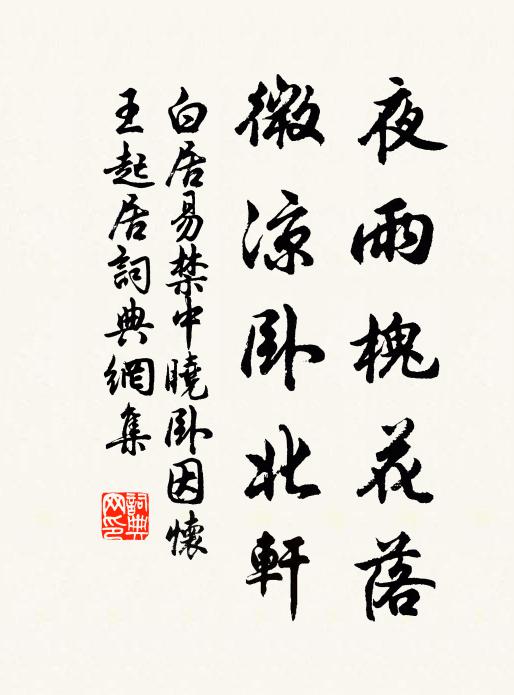 夜雨槐花落
微涼臥北軒
白居易禁中曉臥因懷
王起居詞典網集
詞典
网印